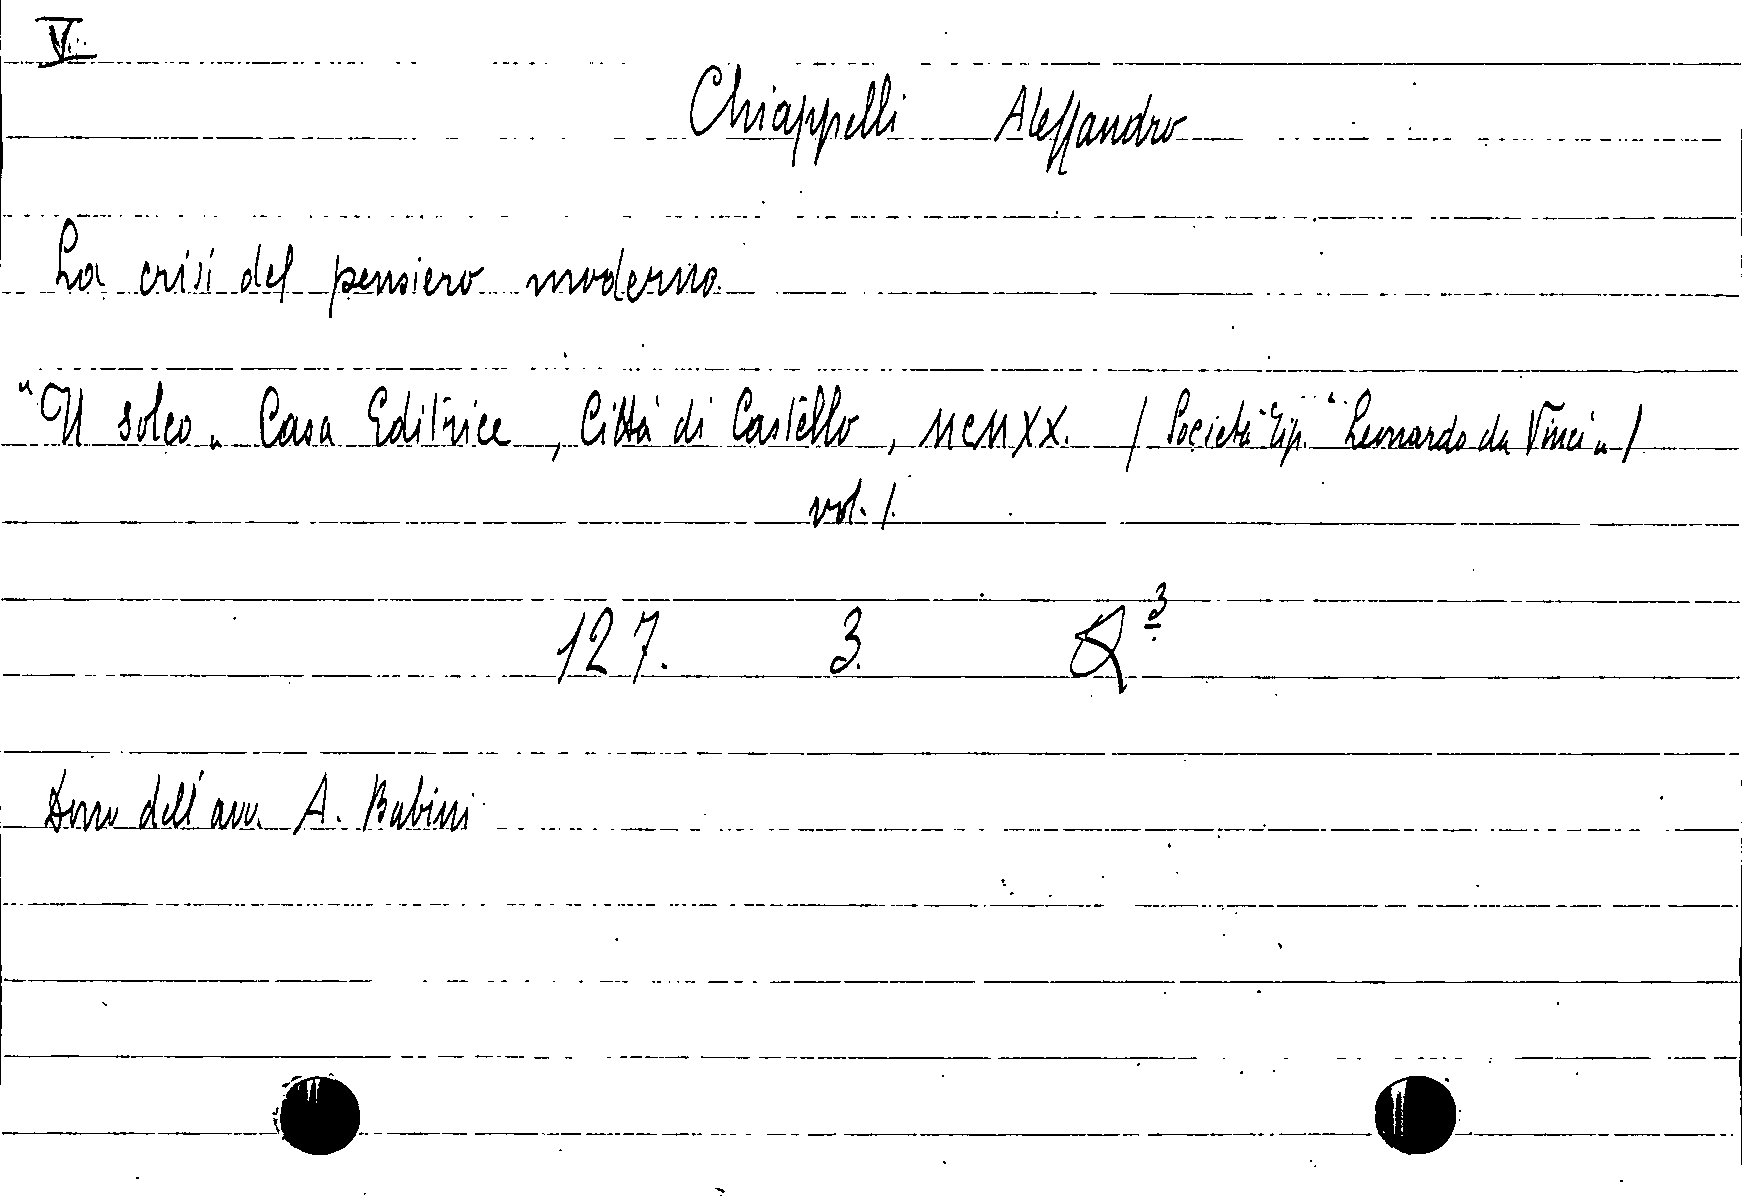 V
Chiappelli Alessandro
La crisi del pensiero moderno.
"Il solco" Casa Editrice, Città di Castello, MCMXX. / Società Tip. "Leonardo da Vinci" /
vol. 1.
127. 3. R³
Dono dell'avv. A. Babini